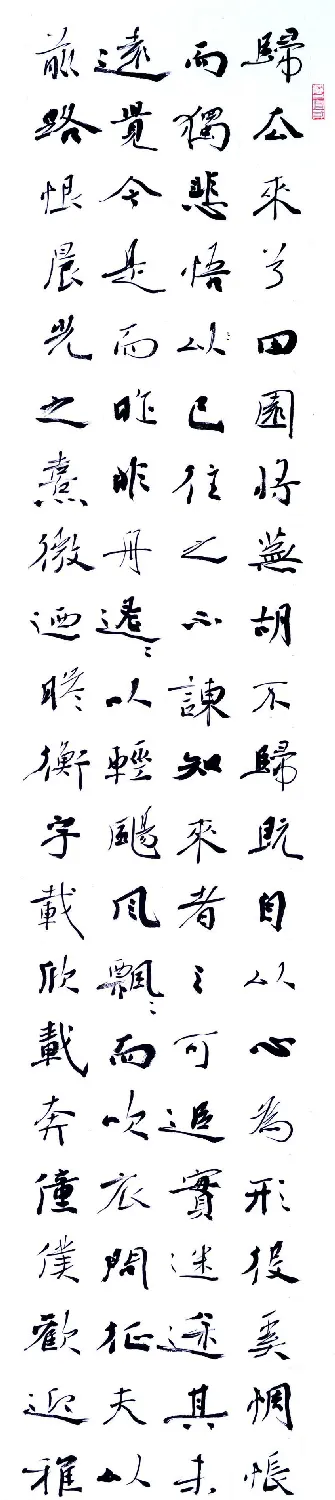 歸去來兮田園將蕪胡不歸既自以心為形役奚惆悵
而獨悲悟以已往之不諫知來者之可追實迷途其未
遠覺今是而昨非舟遙〻以輕颺風飄〻而吹衣問征夫以
前路恨晨光之熹微迺瞻衡宇載欣載奔僮僕歡迎稚